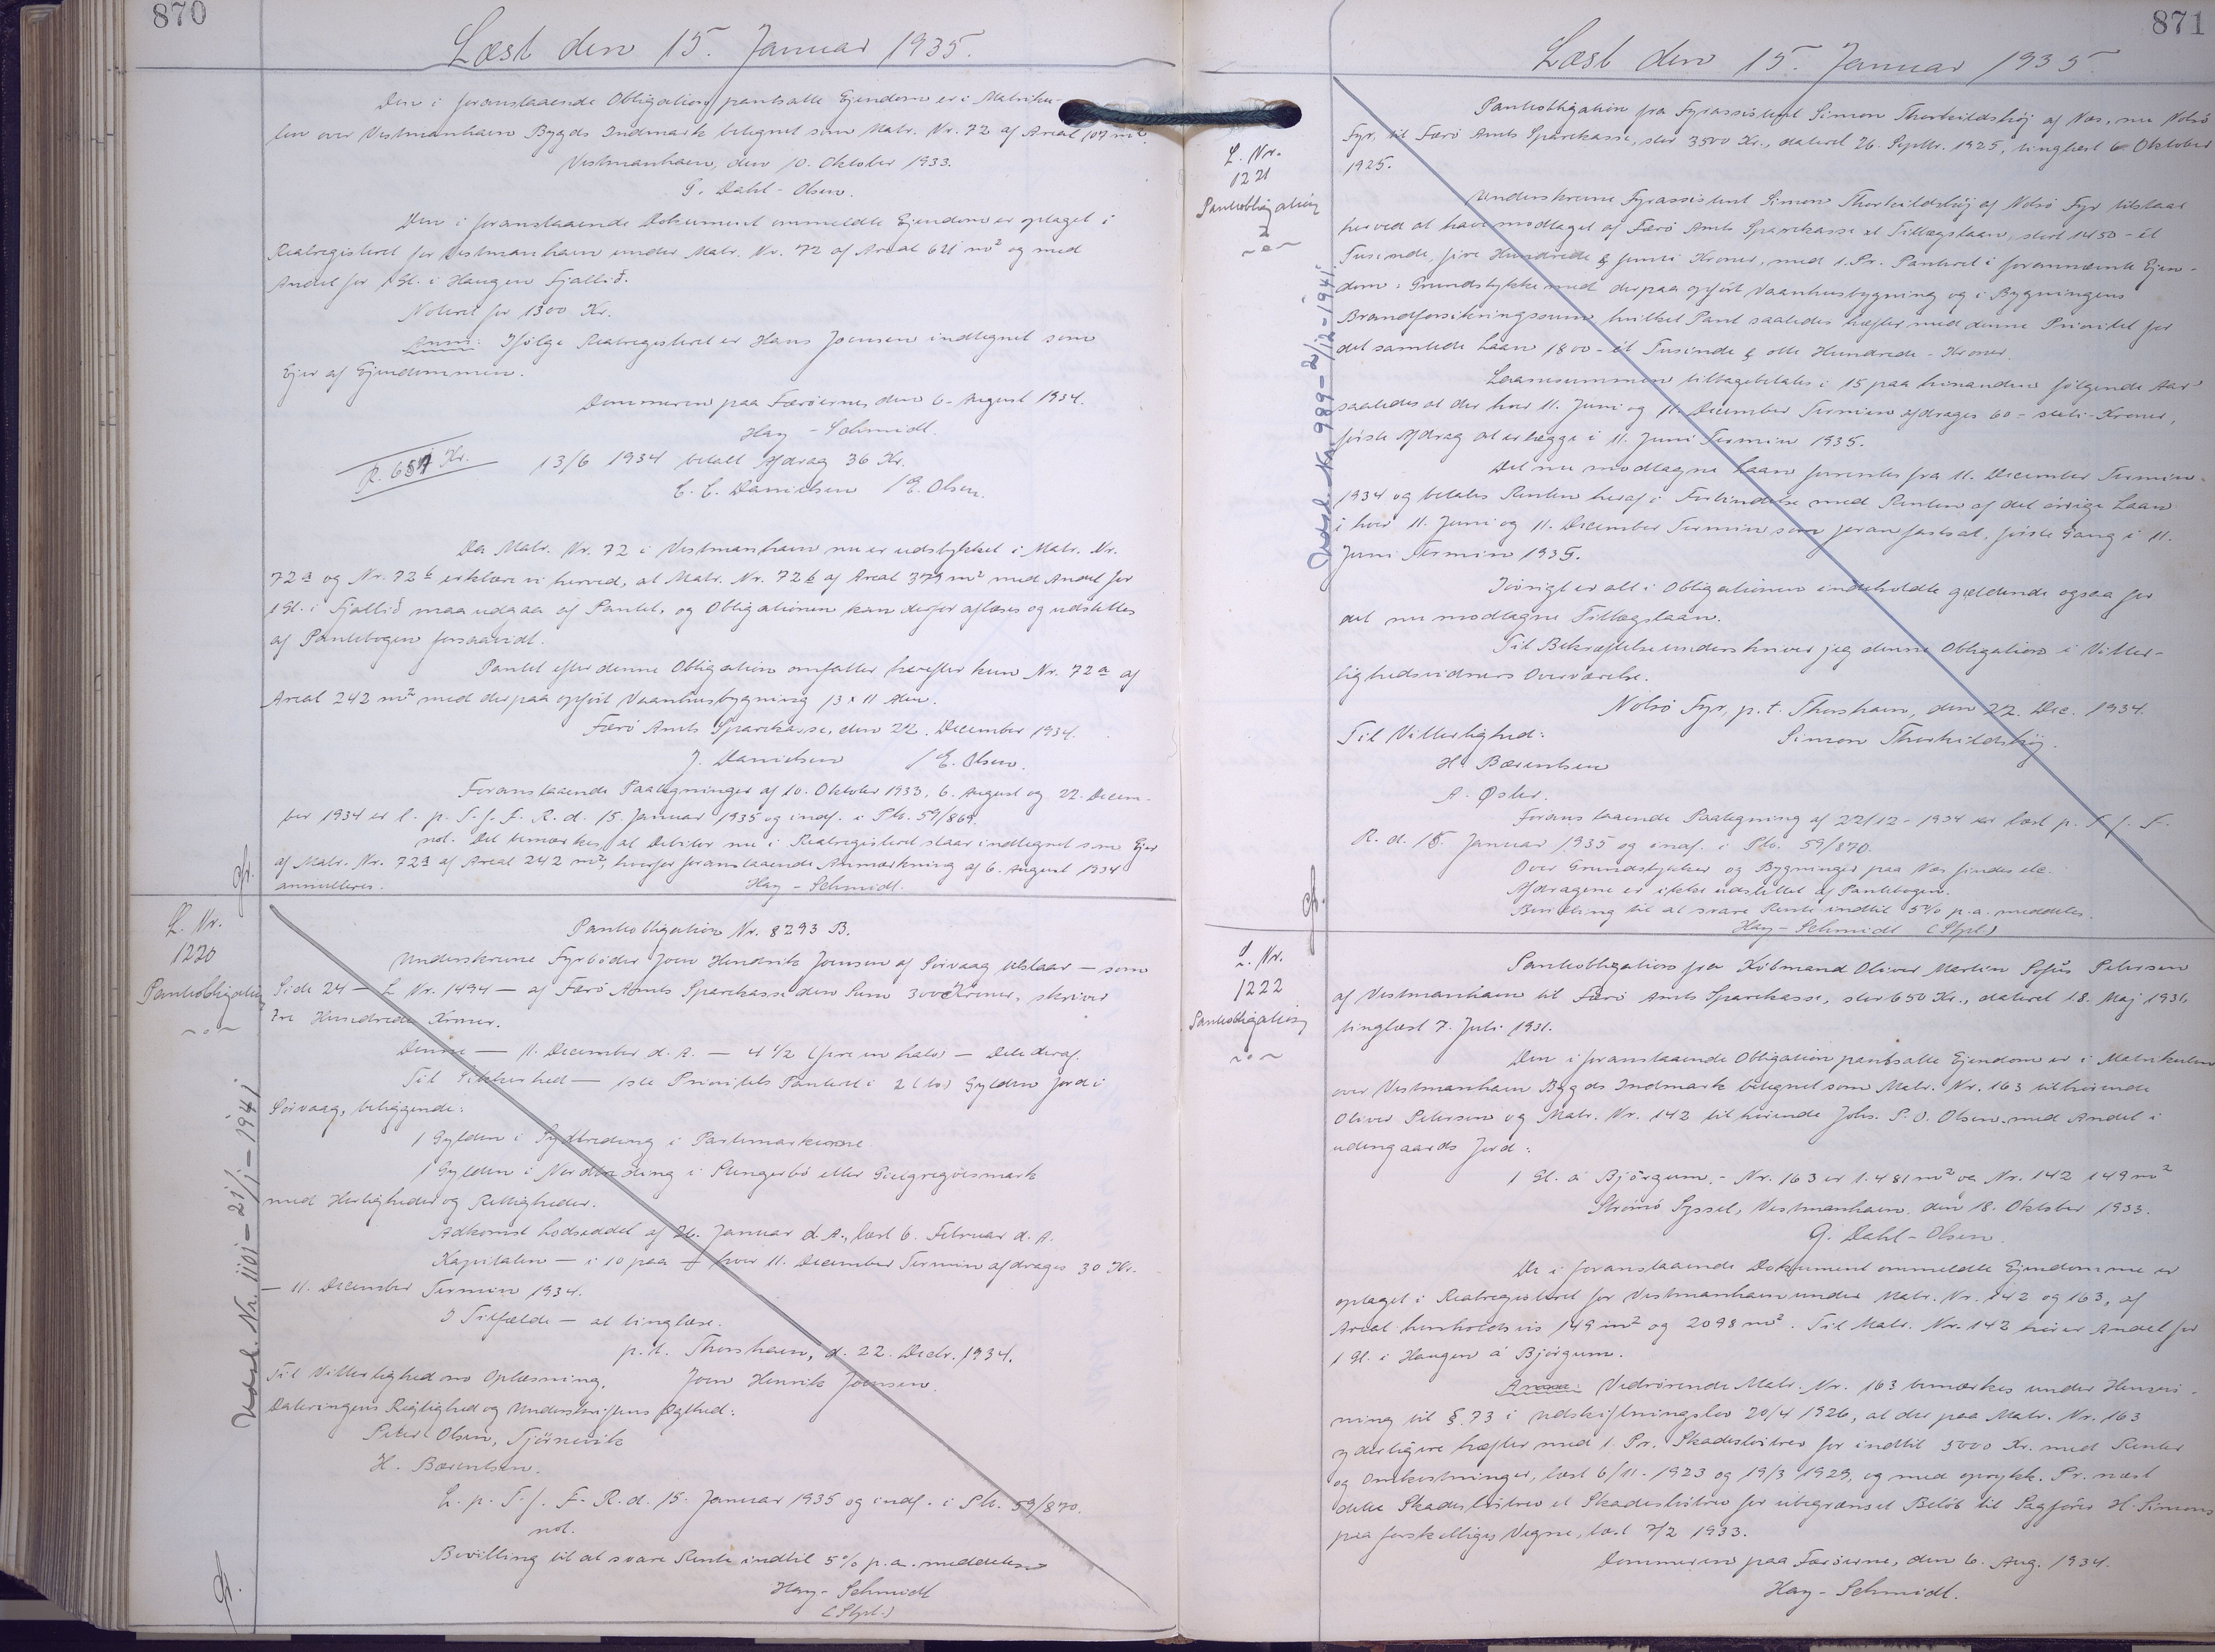 870
Læst den 15. Januar 1935.
Den i foranstaaende Obligation pantsatte Ejendom er i Matriku-
len over Vestmanhavn Bygds Indmark betegnet som Matr. Nr. 72 af Areal 107 m².
Vestmanhavn, den 10. Oktober 1933.
G. Dahl-Olsen.
Den i foranstaaende Dokument ommeldte Ejendom er optaget i
Realregistret for Vestmanhavn under Matr. Nr. 72 af Areal 621 m² og med
Andel for 1 Gl. i Haugen Fjallið.
Noteret for 1300 Kr.
Anm: Ifølge Realregistret er Hans Joensen indtegnet som
Ejer af Ejendommen.
Dommeren paa Færøerne, den 6. August 1934.
Hay-Schmidt.
R. 657 Kr. 13/6 1934 betalt Afdrag 36 Kr.
C. C. Danielsen /E. Olsen.
Da Matr. Nr. 72 i Vestmanhavn nu er udstykket i Matr. Nr.
72 a og Nr. 72 b erklærer vi herved, at Matr. Nr. 72 b af Areal 379 m² med Andel for
1 Gl. i Fjallið maa udgaa af Pantet, og Obligationen kan derfor aflæses og udslettes
af Pantebogen forsaavidt.
Pantet efter denne Obligation omfatter herefter kun Nr. 72 a af
Areal 242 m² med derpaa opført Vaanhusbygning 13 x 11 Alen.
Færø Amts Sparekasse, den 22. December 1934.
J. Danielsen /E. Olsen.
Foranstaaende Paategninger af 10. Oktober 1933, 6. August og 22. Decem-
ber 1934 er l. p. T. f. F. R. d. 15. Januar 1935 og indf. i Pb. 59/869.
not. Det bemærkes, at Debitor nu i Realregistret staar indtegnet som Ejer
af Matr. Nr. 72 a af Areal 242 m², hvorfor foranstaaende Anmærkning af 6. August 1934
annulleres. Hay-Schmidt.
L. Nr.
1220
Pantobligation
Udsl. Nr. 1101 - 21/1 - 1941
Pantobligation Nr. 8293 B.
Underskrevne Fyrbøder Joen Hendrik Joensen af Sørvaag tilstaar - som
Side 24 - L Nr. 1494 - af Færø Amts Sparekasse den Sum 300 Kroner, skriver
Tre Hundrede Kroner.
Denne - 11. December d. A. - 4 1/2 (fire en halv) - Dele deraf.
Til Sikkerhed - 1ste Prioritets Panteret i 2 (to) Gylden Jord i
Sørvaag, beliggende:
1 Gylden i Sydbreding i Partimarkerne
1 Gylden i Nordbreding i Slengerbø eller Gielgregoismark
med Herligheder og Rettigheder.
Adkomst Lodseddel af 26. Januar d. A., læst 6. Februar d. A.
Kapitalen - i 10 paa - hver 11. December Termin afdrages 30 Kr.
- 11. December Termin 1934.
I Tilfælde - at tinglæse.
p. t. Thorshavn, d. 22. Decbr. 1934.
Til Vitterlighed om Oplæsning, Joen Henrik Joensen.
Dateringens Rigtighed og Underskriftens Ægthed:
Peter Olsen, Tjörnevik
H. Bærentsen.
L. p. T. f. F. R. d. 15. Januar 1935 og indf. i Pb. 59/870.
not.
Bevilling til at svare Rente indtil 5% p. a. meddeles
Hay-Schmidt
(Stpl.)
871
Læst den 15. Januar 1935
L. Nr.
1221
Pantobligation
Udsl. Nr. 989 - 2/12 - 1941
Pantobligation fra Fyrassistent Simon Thorkildshøj af Næs, nu Nolsö
Fyr, til Færö Amts Sparekasse, stor 3500 Kr., dateret 26. Septbr. 1925, tinglæst 6 Oktober
1925.
Underskrevne Fyrassistent Simon Thorkildshøj af Nolsö Fyr tilstaar
herved at have modtaget af Færö Amts Sparekasse et Tillægslaan, stort 1450 - ét
Tusinde, fire Hundrede & femti Kroner, med 1. Pr. Panteret i forannævnte Ejen-
dom: Grundstykke med derpaa opført Vaanhusbygning og i Bygningens
Brandforsikringssum, hvilket Pant saaledes hæfter med denne Prioritet for
det samlede Laan 1800 - ét Tusinde & otte Hundrede - Kroner.
Laanesummen tilbagebetales i 15 paa hinanden følgende Aar
saaledes at der hver 11. Juni og 11. December Termin afdrages 60 - seksti - Kroner,
første Afdrag at erlægge i 11. Juni Termin 1935.
Det nu modtagne Laan forrentes fra 11. December Termin
1934 og betales Renten heraf i Forbindelse med Renten af det øvrige Laan
i hver 11. Juni og 11. December Termin som foran fastsat, første Gang i 11.
Juni Termin 1935.
Iøvrigt er alt i Obligationen indeholdte gældende ogsaa for
det nu modtagne Tillægslaan.
Til Bekræftelse underskriver jeg denne Obligation i Vitter-
lighedsvidners Overværelse.
Nolsö Fyr, p. t. Thorshavn, den 22. Dec. 1934.
Til Vitterlighed: Simon Thorkildshøj.
H. Bærentsen
A. Øster.
Foranstaaende Paategning af 22/12 - 1934 er læst p. T. f. F.
R. d. 15. Januar 1935 og indf. i Pb. 59/870.
Over Grundstykker og Bygninger paa Næs findes ele.
Afdragene er ikke udslettet af Pantebogen.
Bevilling til at svare Rente indtil 5% p. a. meddeles.
Hay-Schmidt (Stpl.)
L. Nr.
1222
Pantobligation
Pantobligation fra Købmand Oliver Martin Sofus Petersen
af Vestmanhavn til Færö Amts Sparekasse, stor 650 Kr., dateret 18. Maj 1931,
tinglæst 7. Juli 1931.
Den i foranstaaende Obligation pantsatte Ejendom er i Matrikulen
over Vestmanhavn Bygds Indmark betegnet som Matr. Nr. 163 tilhørende
Oliver Petersen og Matr. Nr. 142 tilhørende Johs. P. O. Olsen med Andel i
udengaards Jord:
1 Gl. á Björgum, - Nr. 163 er 1.481 m² og Nr. 142 149 m²
Strömö Syssel, Vestmanhavn, den 18. Oktober 1933.
G. Dahl-Olsen.
De i foranstaaende Dokument ommeldte Ejendomme er
optaget i Realregistret for Vestmanhavn under Matr. Nr. 142 og 163, af
Areal henholdsvis 149 m² og 2098 m². Til Matr. Nr. 142 hører Andel for
1 Gl. i Haugen á Björgum.
Anm: Vedrørende Matr. Nr. 163 bemærkes under Henvis-
ning til §. 73 i Udskiftningslov 20/4 1926, at der paa Matr. Nr. 163
yderligere hæfter med 1. Pr. Skadesløsbrev for indtil 5000 Kr. med Renter
og Omkostninger, læst 6/11 - 1923 og 19/3 1929, og med oprykk. Pr. næst
dette Skadesløsbrev et Skadesløsbrev for ubegrænset Beløb til Sagfører H. Simons
paa forskelliges Vegne, læst 7/2 1933.
Dommeren paa Færøerne, den 6. Aug. 1934.
Hay-Schmidt.